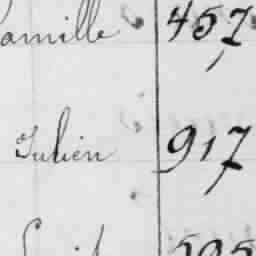 Camille 457
Julien 917
595